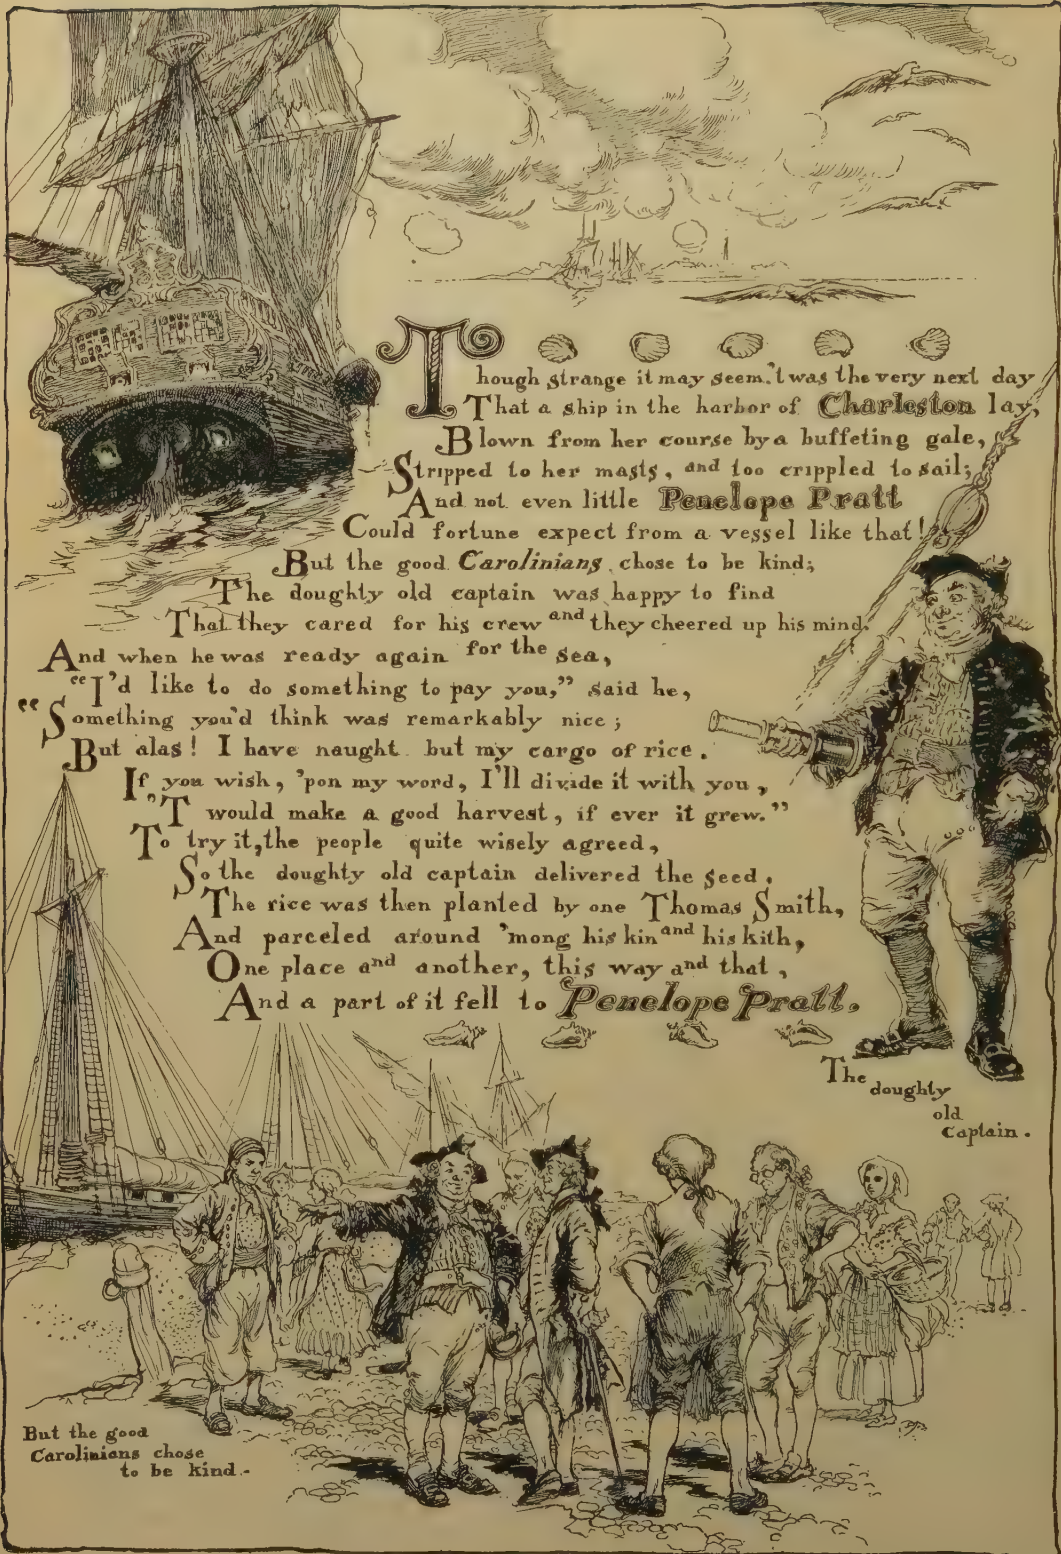 Though strange it may seem, 'twas the very next day
That a ship in the harbor of Charleston lay,
Blown from her course by a buffeting gale,
Stripped to her masts, and too crippled to sail;
And not even little Penelope Pratt
Could fortune expect from a vessel like that!
But the good Carolinians chose to be kind;
The doughty old captain was happy to find
That they cared for his crew and they cheered up his mind.
And when he was ready again for the sea,
"I'd like to do something to pay you," said he,
"Something you'd think was remarkably nice;
But alas! I have naught but my cargo of rice.
If you wish, 'pon my word, I'll divide it with you,
'T would make a good harvest, if ever it grew."
To try it, the people quite wisely agreed,
So the doughty old captain delivered the seed.
The rice was then planted by one Thomas Smith,
And parceled around 'mong his kin and his kith,
One place and another, this way and that,
And a part of it fell to Penelope Pratt.
The
doughty
old
Captain.
But the good
Carolinians chose
to be kind.-